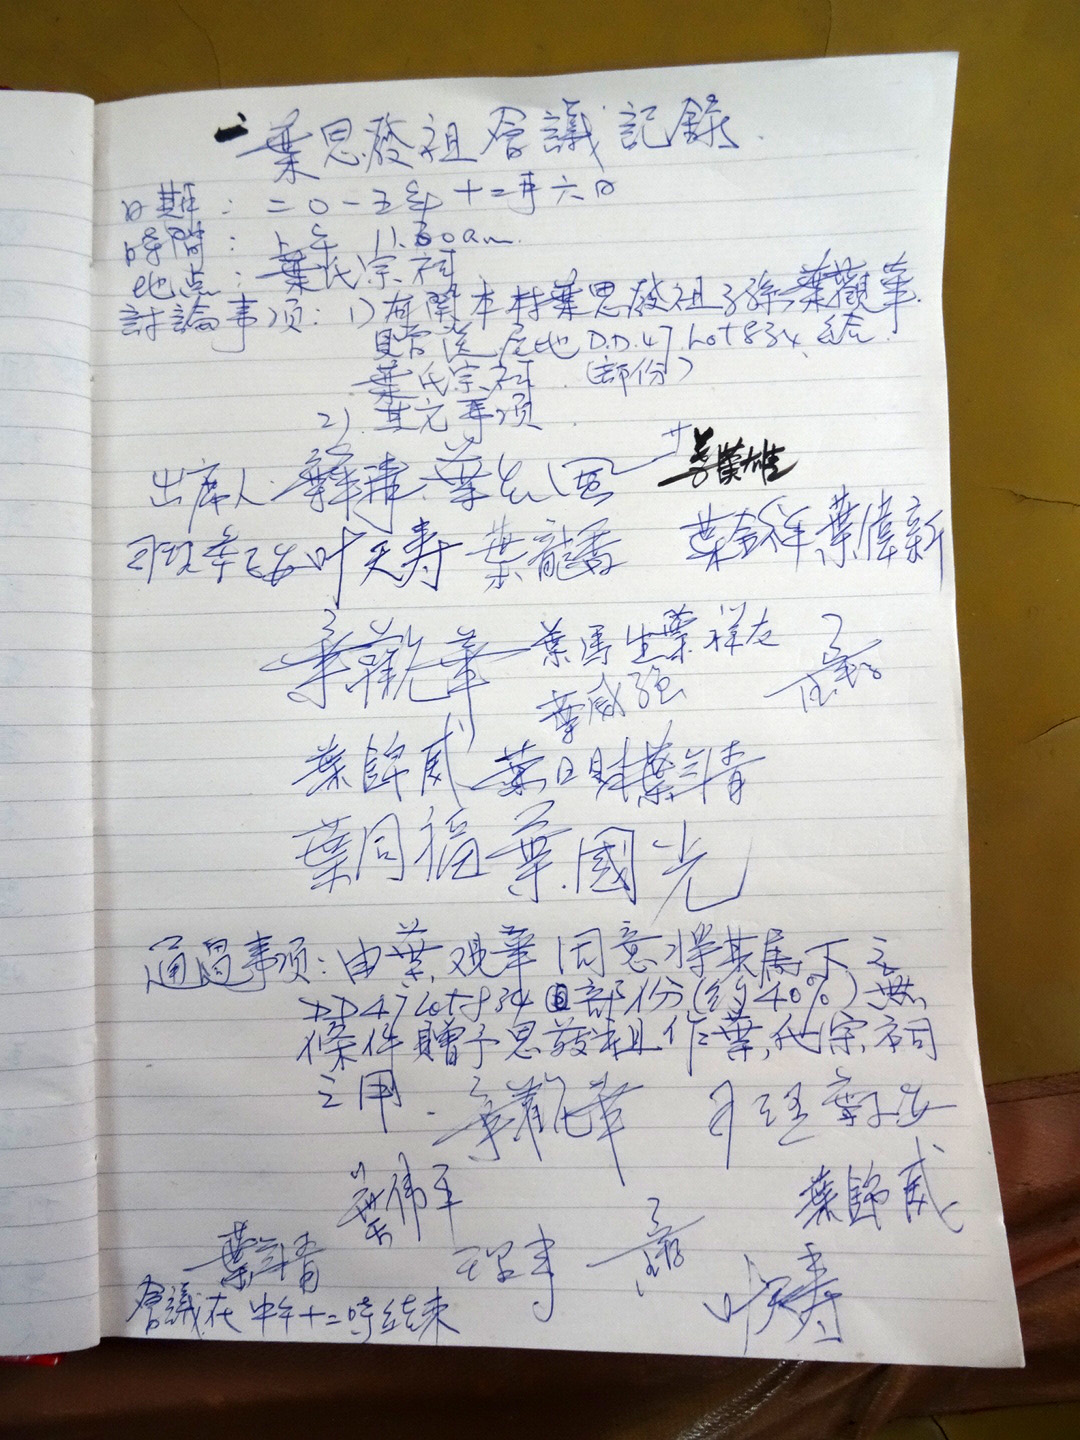 葉思發祖會議記錄
日期：二0一五年十二月六日
時間：上午 11.30am.
地点：葉氏宗祠
討論事項：1) 有関本村葉思發祖子孫葉觀華
贈送屋地 D.D.47 Lot 834 給
葉氏宗祠 (部份)
2) 其它事項
出席人 葉漢雄
叶天寿 葉龍香 葉金祥 葉偉新
葉觀華 葉馬生 葉祥友
葉威强
葉錦威 葉日財 葉斗青
葉同福 葉國光
通過事项：由葉观華同意將其属下之
DD47 Lot 834 部份(約40%)無
條件贈予思發祖作葉氏宗祠
之用.
葉觀華
葉偉平 葉錦威
葉斗青 叶天寿
會議在中午十二時结束